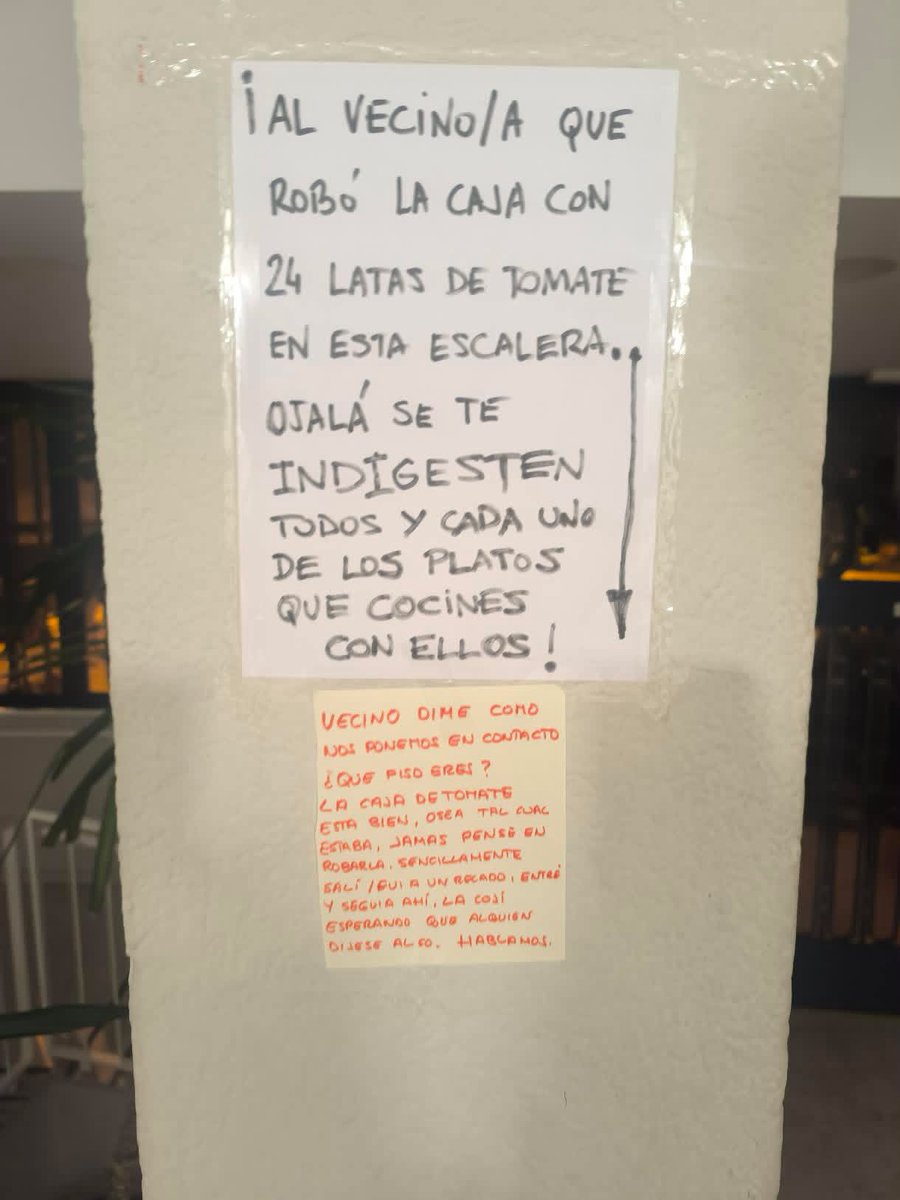 ¡AL VECINO/A QUE
ROBÓ LA CAJA CON
24 LATAS DE TOMATE
EN ESTA ESCALERA..
OJALÁ SE TE
INDIGESTEN
TODOS Y CADA UNO
DE LOS PLATOS
QUE COCINES
CON ELLOS!
VECINO DIME COMO
NOS PONEMOS EN CONTACTO
¿QUE PISO ERES?
LA CAJA DE TOMATE
ESTA BIEN, OSEA TAL CUAL
ESTABA, JAMAS PENSÉ EN
ROBARLA. SENCILLAMENTE
SALÍ/FUI A UN RECADO, ENTRÉ
Y SEGUIA AHÍ, LA COJÍ
ESPERANDO QUE ALGUIEN
DIJESE ALGO. HABLAMOS.